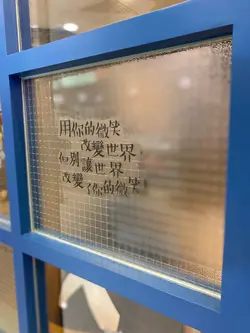 用你的微笑
改變世界,
但別讓世界
改變了你的微笑